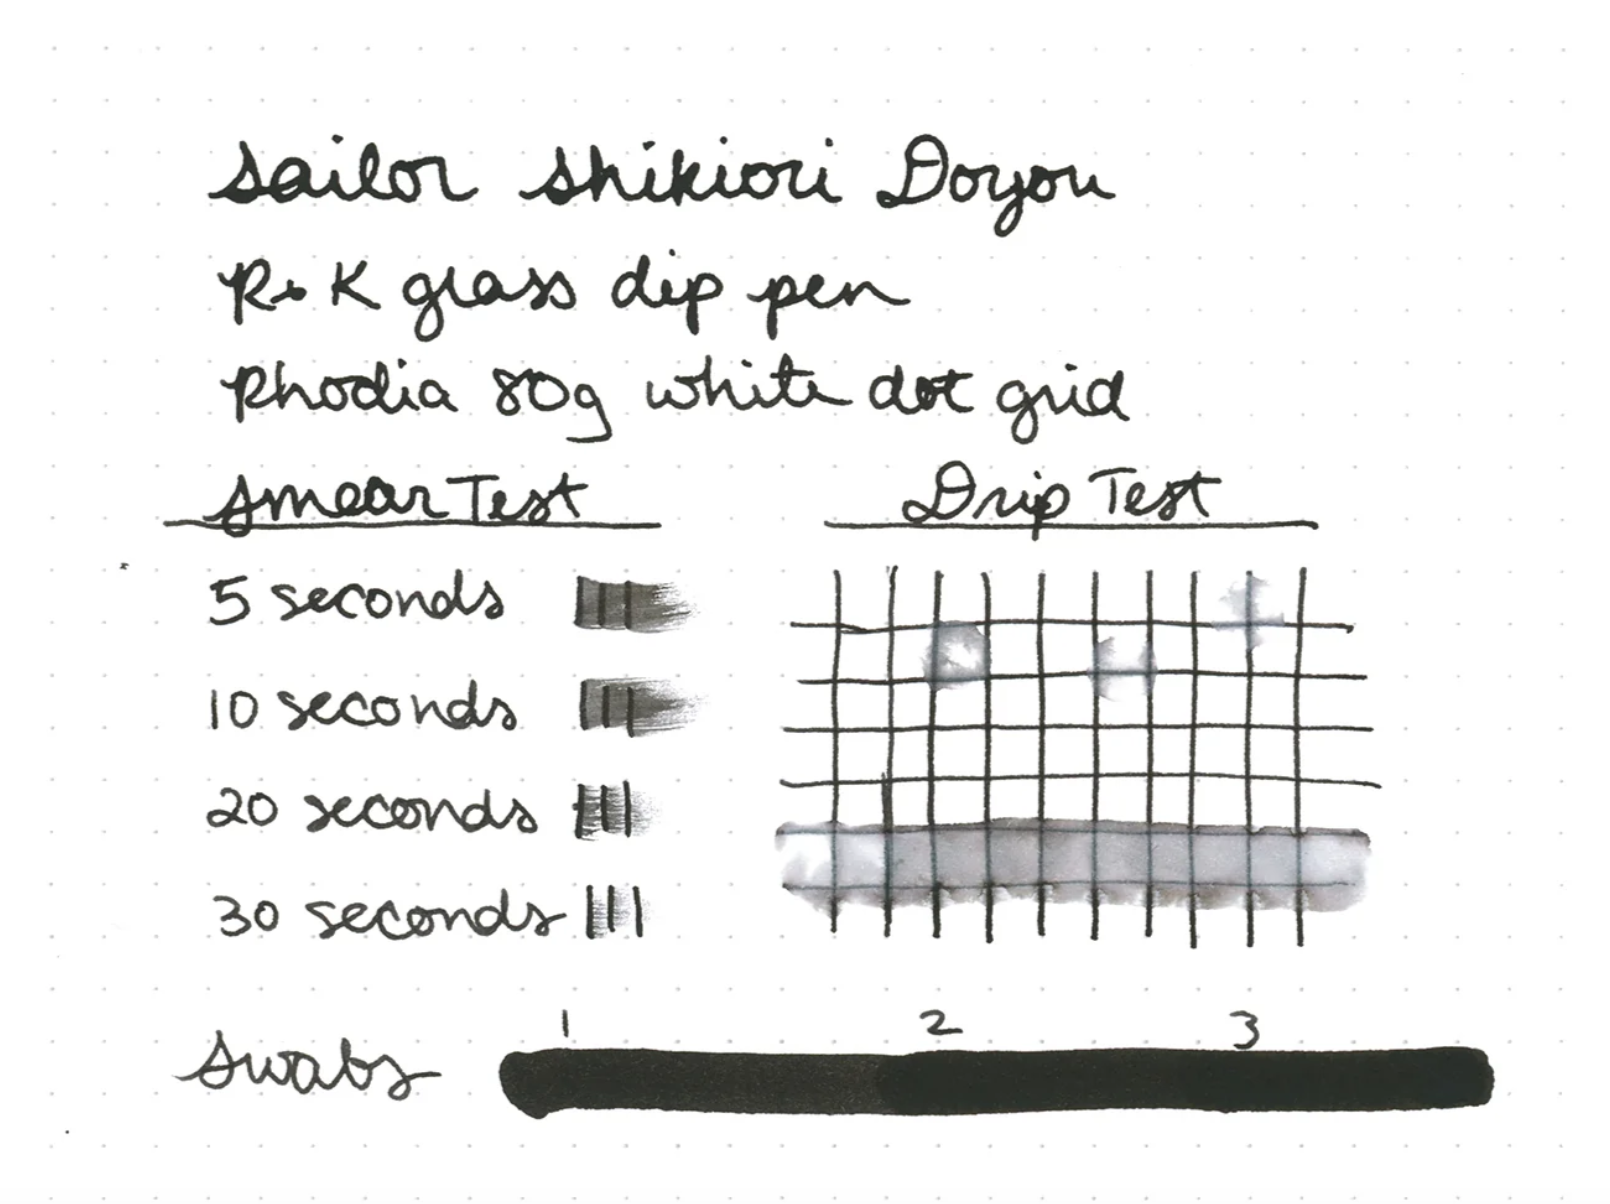 Sailor Shikiori Doyou
R+K glass dip pen
Rhodia 80g white dot grid
Smear Test
Drip Test
5 seconds
10 seconds
20 seconds
30 seconds
1 2 3
Swabs